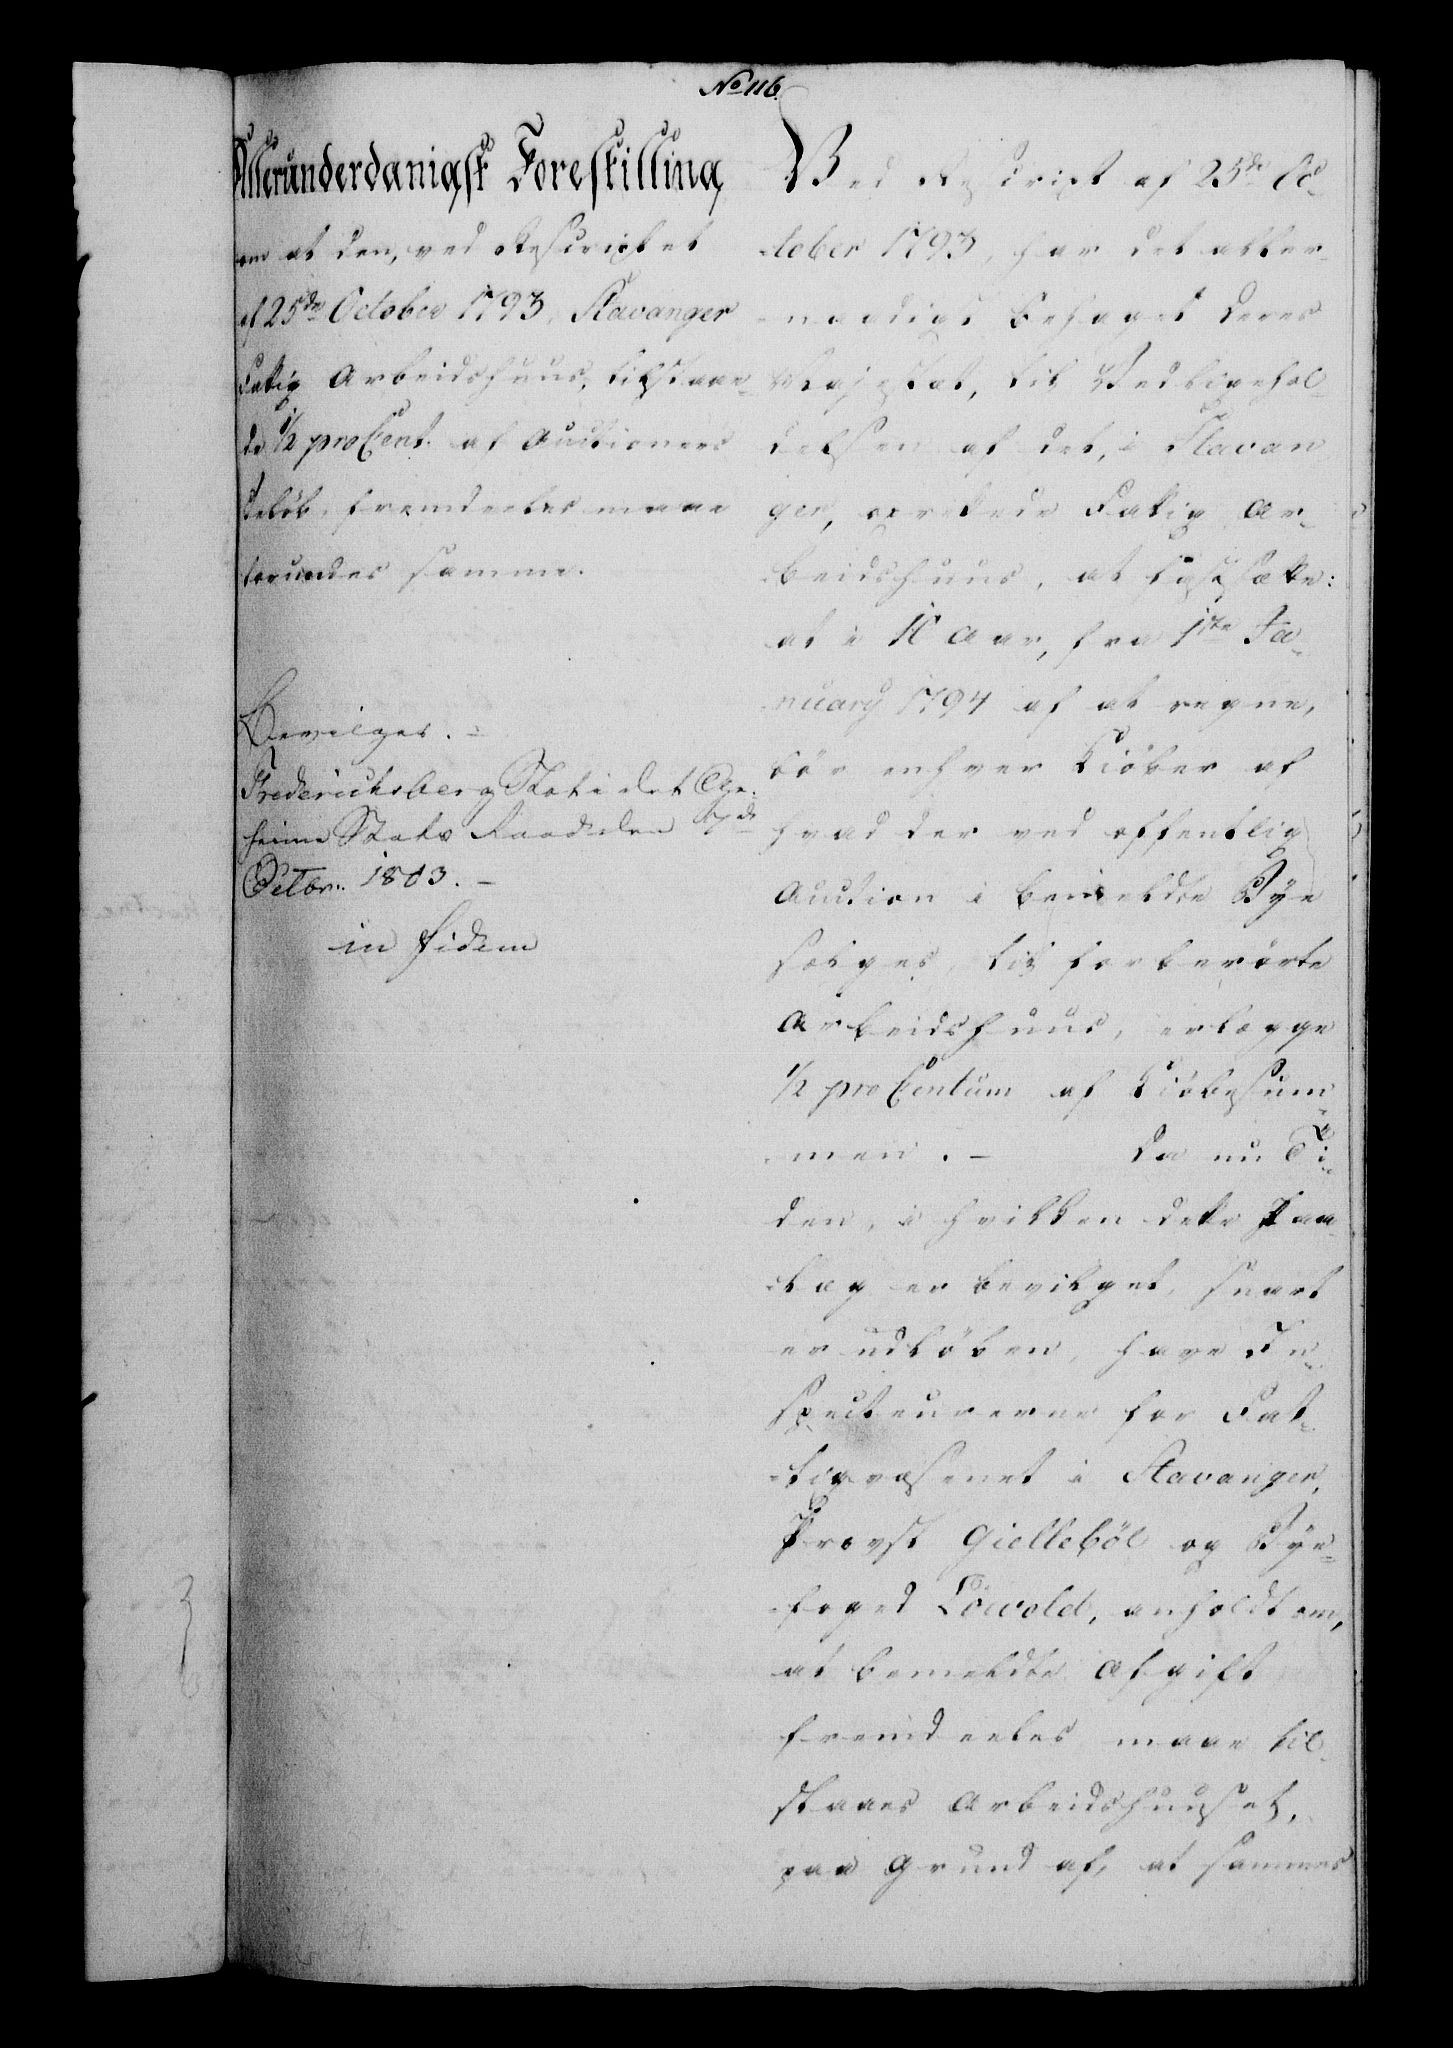 No 116.
Allerunderdanigst Forestilling
om at den, ved Rescriptet
af 25de October 1793, Stavanger
Fattig Arbeidshuus, tilstaae-
de 1/2 pro Cent. af Auctioners
Beløb, fremdeeles maae
forundes samme.
Bevilges. -
Frederichsberg Slot i det Ge-
heime Stats Raad den 7de
Octbr. 1803. -
in fidem
Ved Rescript af 25de Oc-
tober 1793, har det aller-
naadigst behaget Deres
Majestæt, til Vedligehol-
delsen af det, i Stavan
ger, oprettede Fattig Ar-
beidshuus, at fastsætte:
at i 10 Aar, fra 1ste Ja-
nuarij 1794 af at regne,
bør enhver Kiøber af
hvad der ved offentlig
Auction i bemeldte Bye
sælges, til forberørte
Arbeidshuus, erlægge
1/2 pro Centum af Kiøbesum-
men. - Da nu Ti-
den, i hvilken dette Paa-
læg er bevilget, snart
er udløben, have In-
specteurerne for Fat-
tigvæsenet i Stavanger,
Provst Giellebøl og Bye-
foged Løwold, anholdt om,
at bemeldte Afgift
fremdeeles maae til-
staaes Arbeidshuuset,
paa Grund af, at sammes